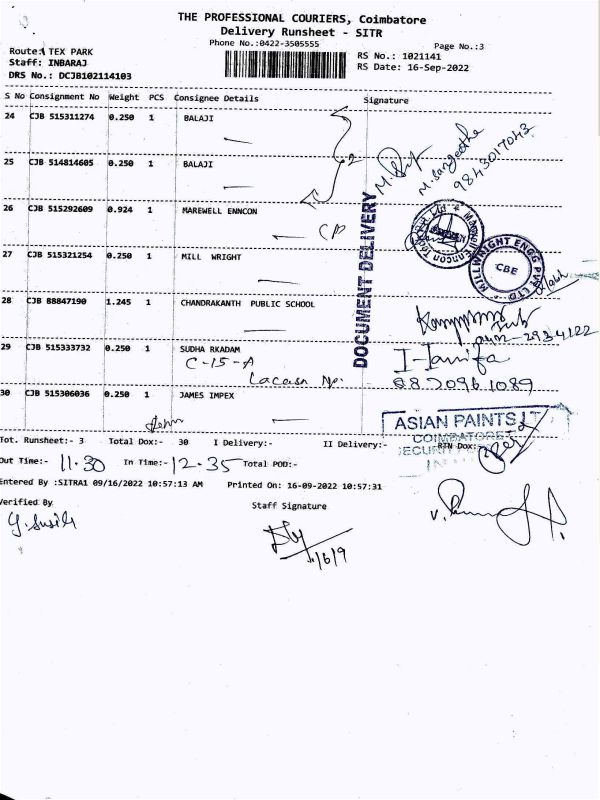 THE PROFESSIONAL COURIERS, Coimbatore
Delivery Runsheet - SITR
Phone No.:0422-3505555
Page No.:3
Route: TEX PARK
RS No.: 1021141
Staff: INBARAJ
RS Date: 16-Sep-2022
DRS No.: DCJB102114103
S No Consignment No Weight PCS Consignee Details Signature
24 CJB 515311274 0.250 1 BALAJI
25 CJB 514814605 0.250 1 BALAJI
2
M. Sangeetha
9843017043
26 CJB 515292609 0.924 1 MAREWELL ENNCON
27 CJB 515321254 0.250 1 MILL WRIGHT
MILLWRIGHT ENGG PVT LTD
CBE
28 CJB 88847190 1.245 1 CHANDRAKANTH PUBLIC SCHOOL
DOCUMENT DELIVERY
29 CJB 515333732 0.250 1 SUDHA RKADAM
C-15-A
8870961089
30 CJB 515306036 0.250 1 JAMES IMPEX
ASIAN PAINTS
COIMBATORE
Tot. Runsheet:- 3 Total Dox:- 30 I Delivery:- II Delivery:- RTN Dox:
Out Time:- 11.30 In Time:- 12.35 Total POD:-
Entered By :SITRA1 09/16/2022 10:57:13 AM Printed On: 16-09-2022 10:57:31
Verified By
Staff Signature